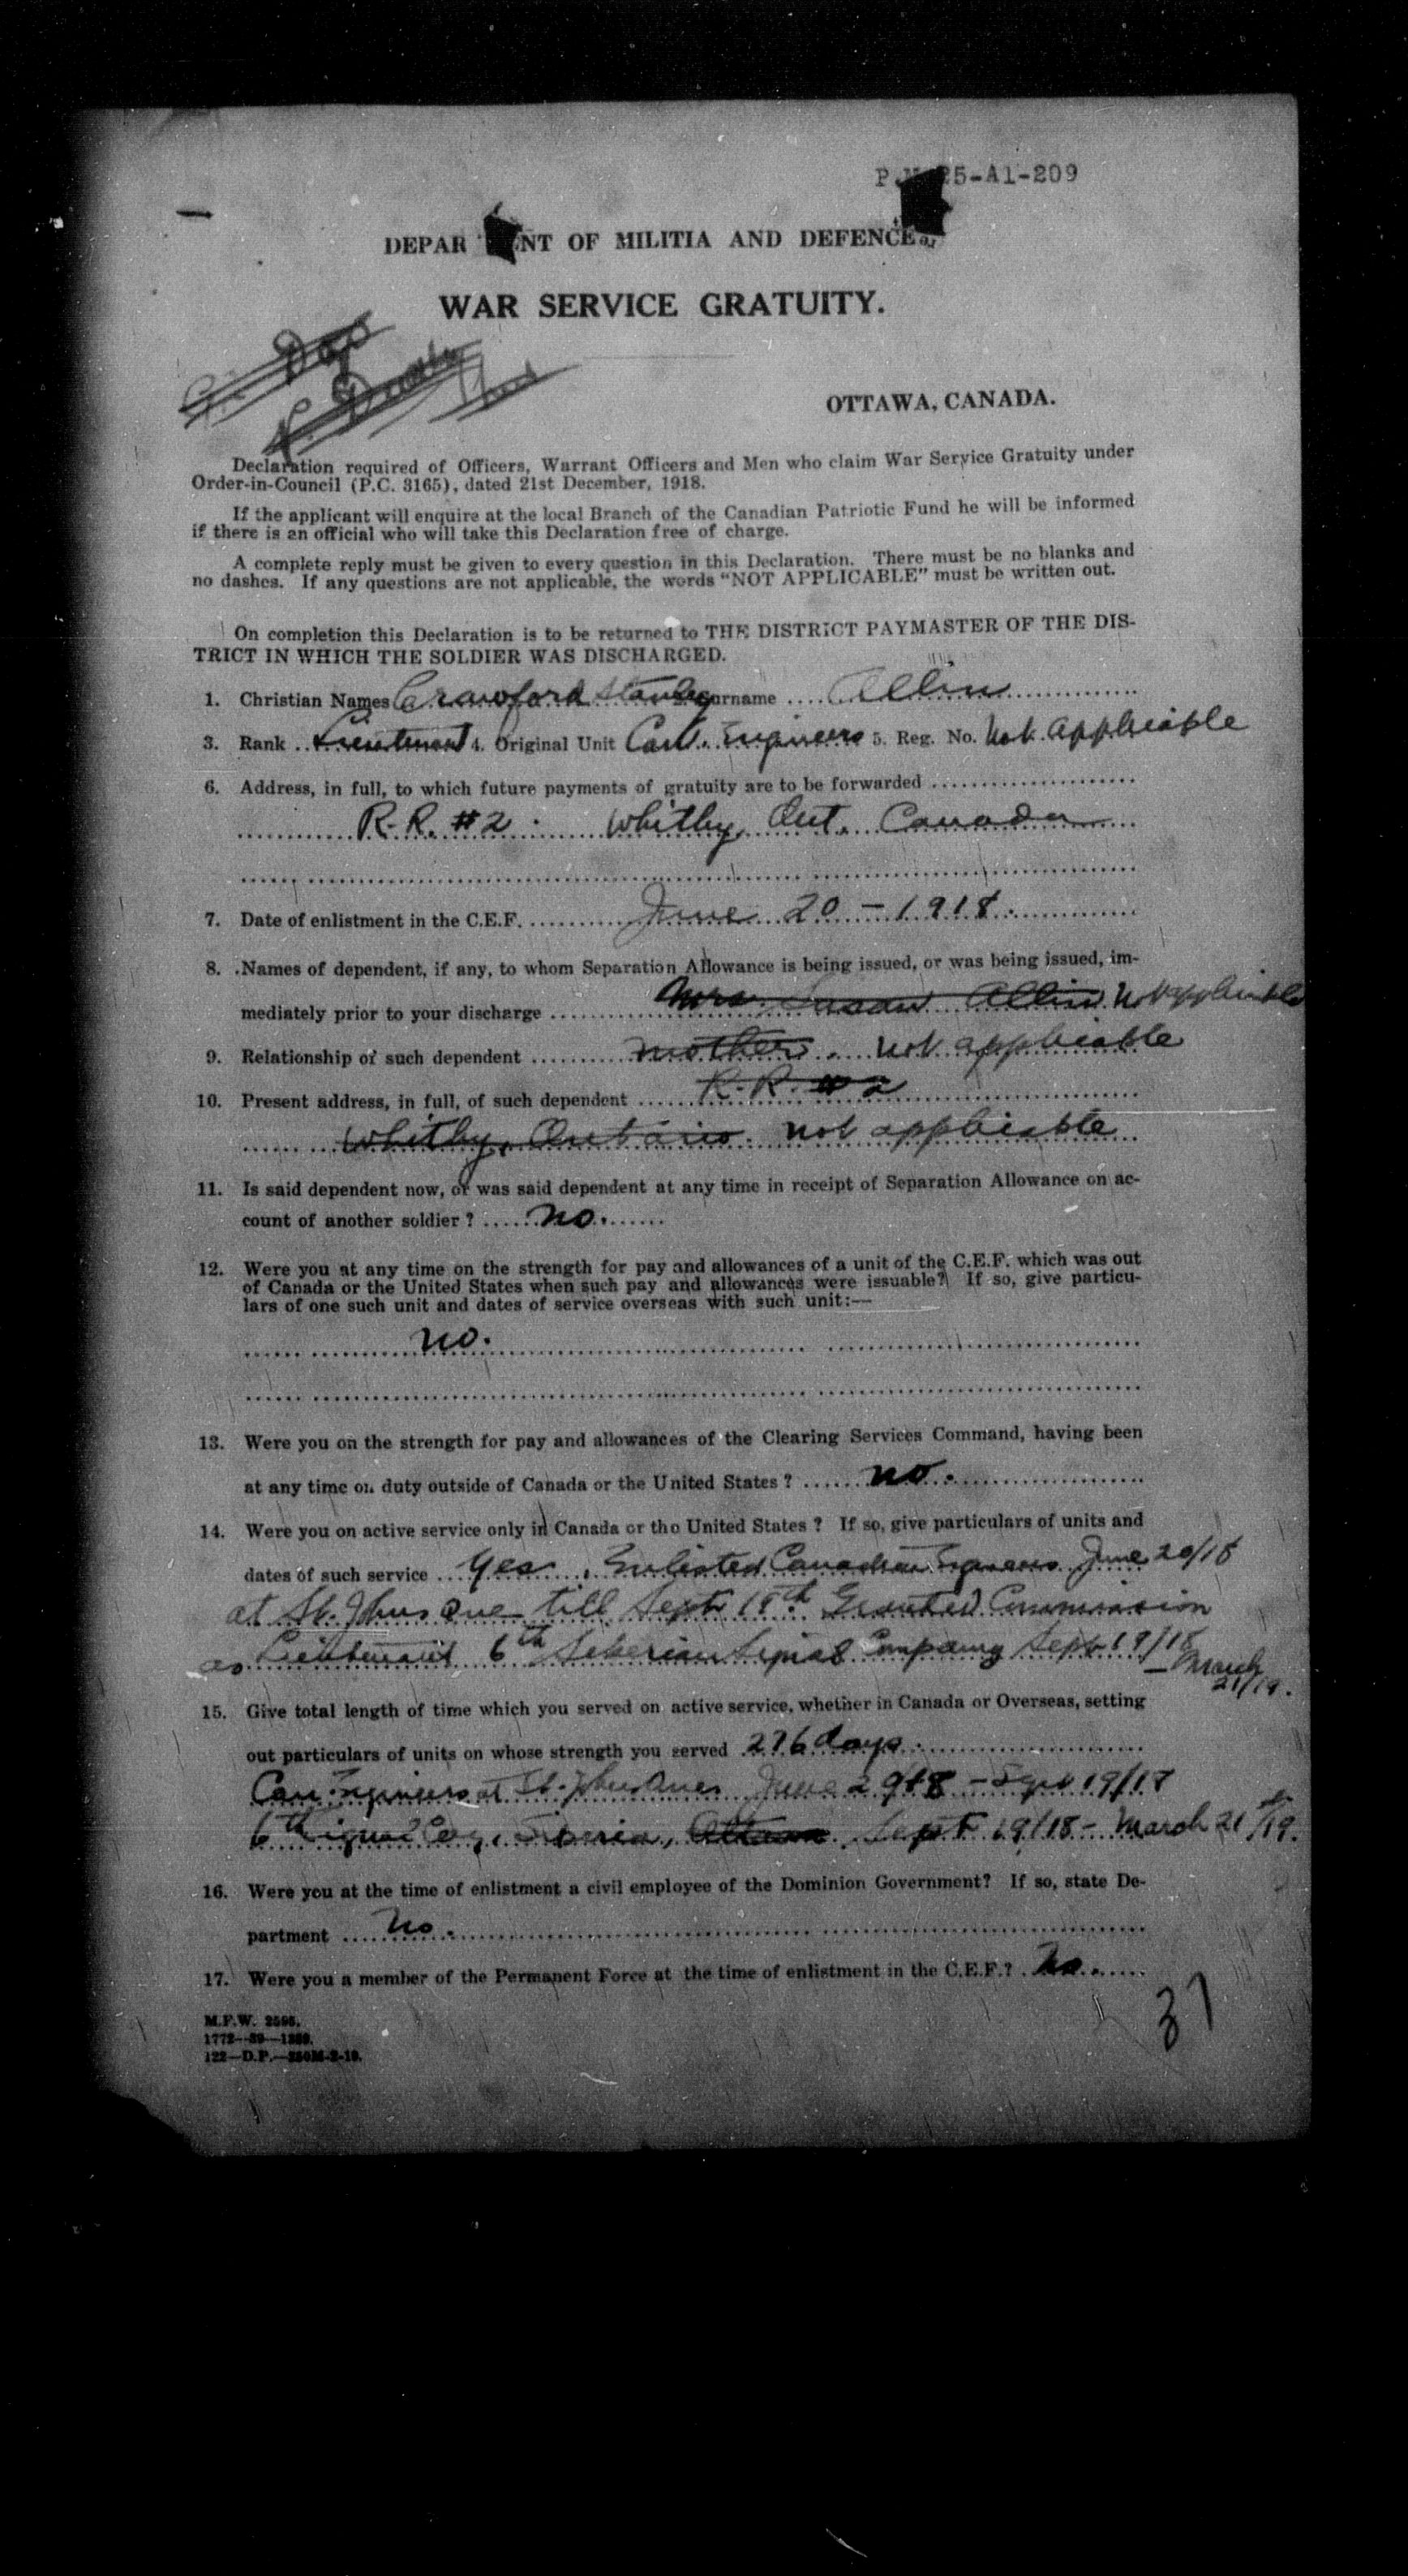 25-A1-209
DEPAR NT OF MILITIA AND DEFENCE
WAR SERVICE GRATUITY.
OTTAWA, CANADA.
Declaration required of Officers, Warrant Officers and Men who claim War Service Gratuity under
Order-in-Council (P.C. 3165), dated 21st December, 1918.
If the applicant will enquire at the local Branch of the Canadian Patriotic Fund he will be informed
if there is an official who will take this Declaration free of charge.
A complete reply must be given to every question in this Declaration. There must be no blanks and
no dashes. If any questions are not applicable, the words "NOT APPLICABLE" must be written out.
On completion this Declaration is to be returned to THE DISTRICT PAYMASTER OF THE DIS-
TRICT IN WHICH THE SOLDIER WAS DISCHARGED.
1. Christian Names Crawford Stanley urname Allin
3. Rank Lieutenant 4. Original Unit Can. Engineers 5. Reg. No. Not Applicable
6. Address, in full, to which future payments of gratuity are to be forwarded
R.R. #2. Whitby, Ont. Canada
7. Date of enlistment in the C.E.F. June 20 - 1918.
8. Names of dependent, if any, to whom Separation Allowance is being issued, or was being issued, im-
mediately prior to your discharge Mrs. Susan Allin. Not applicable
9. Relationship of such dependent mother. not applicable
10. Present address, in full, of such dependent R.R. #2
Whitby, Ontario. not applicable
11. Is said dependent now, or was said dependent at any time in receipt of Separation Allowance on ac-
count of another soldier? no.
12. Were you at any time on the strength for pay and allowances of a unit of the C.E.F. which was out
of Canada or the United States when such pay and allowances were issuable? If so, give particu-
lars of one such unit and dates of service overseas with such unit:—
no.
13. Were you on the strength for pay and allowances of the Clearing Services Command, having been
at any time on duty outside of Canada or the United States? no.
14. Were you on active service only in Canada or the United States? If so, give particulars of units and
dates of such service yes, Enlisted Canadian Engineers June 20/18
at St. Johns Que till Sept 18th Granted Commission
as Lieutenant 6th Siberian Signal Company Sept 19/18
- March
21/19.
15. Give total length of time which you served on active service, whether in Canada or Overseas, setting
out particulars of units on whose strength you served 276 days.
Can Engineers at St. Johns Que. June 2918 - Sept 19/18
6th Signal Coy, Siberia, Ottawa Sept 19/18 - March 21st/19.
16. Were you at the time of enlistment a civil employee of the Dominion Government? If so, state De-
partment no.
17. Were you a member of the Permanent Force at the time of enlistment in the C.E.F.? No.
37
M.F.W. 2595.
1772—39—1389.
122—D.P.—250M-2-19.